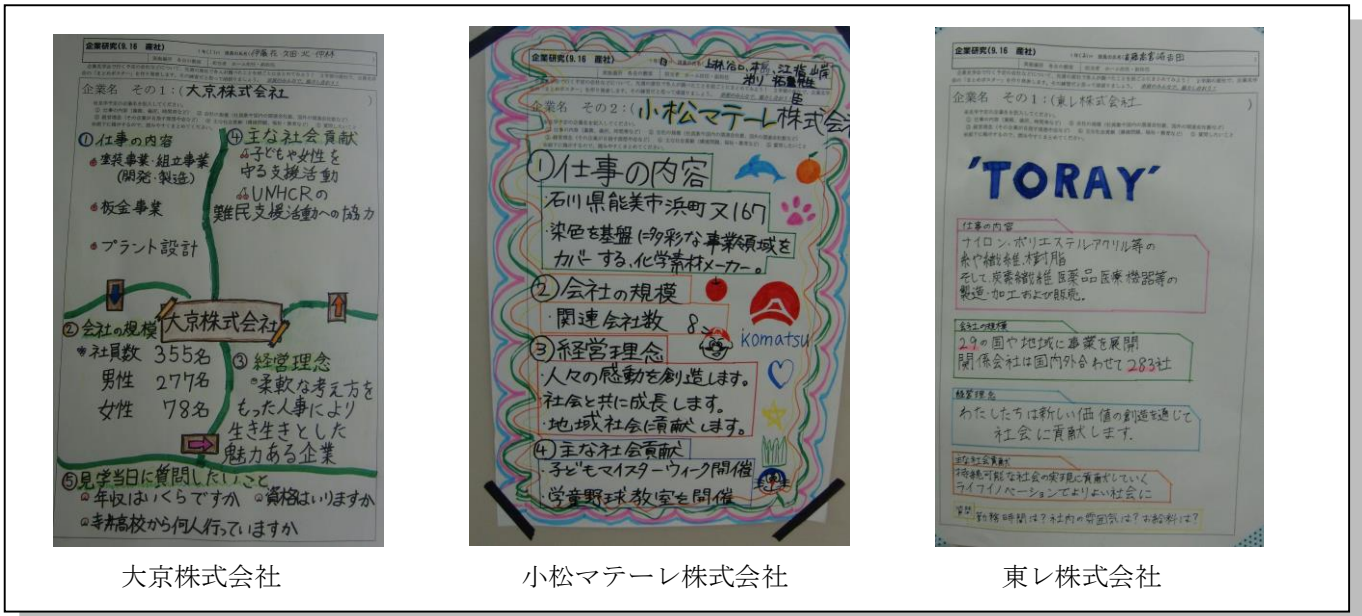 企業研究(9.16 産社)
企業名 その1:(大京株式会社 )
①仕事の内容
塗装事業・組立事業
(開発・製造)
板金事業
プラント設計
④主な社会貢献
子どもや女性を
守る支援活動
UNHCRの
難民支援活動への協力
大京株式会社
②会社の規模
社員数 355名
男性 277名
女性 78名
③経営理念
柔軟な考え方を
もった人事により
生き生きとした
魅力ある企業
⑤見学当日に質問したいこと
年収はいくらですか
資格はいりますか
寺井高校から何人行っていますか
大京株式会社
企業研究(9.16 産社)
企業名 その2:(小松マテーレ株式会社
①仕事の内容
・石川県能美市浜町ヌ167
・染色を基盤に多彩な事業領域を
カバーする、化学素材メーカー。
②会社の規模
・関連会社数 8
komatsu
③経営理念
・人々の感動を創造します。
・社会と共に成長します。
・地域社会に貢献します。
④主な社会貢献
・子どもマイスターウィーク開催
・学童野球教室を開催
小松マテーレ株式会社
企業研究(9.16 産社)
企業名 その1:(東レ株式会社 )
'TORAY'
仕事の内容
ナイロン・ポリエステル・アクリル等の
糸や繊維、樹脂
そして、炭素繊維医薬品医療機器等の
製造・加工および販売。
会社の規模
29の国や地域に事業を展開
関係会社は国内外合わせて283社
経営理念
わたしたちは新しい価値の創造を通じて
社会に貢献します。
主な社会貢献
持続可能な社会の実現に貢献していく
ライフイノベーションでよりよい社会に
質問 勤務時間は?社内の雰囲気は?お給料は?
東レ株式会社